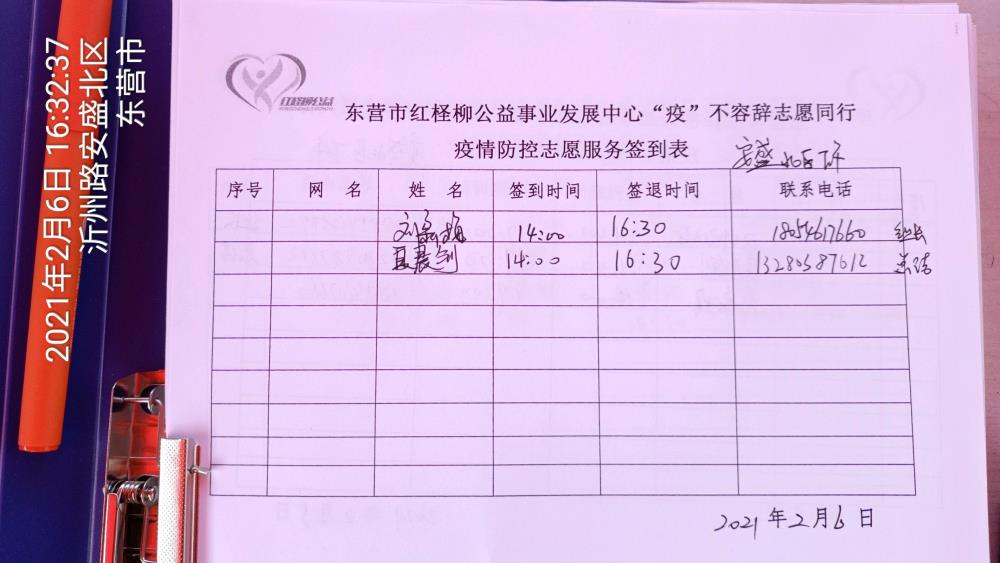 2021年2月6日 16:32:37
沂州路安盛北区
东营市
红柽柳公益
东营市红柽柳公益事业发展中心“疫”不容辞志愿同行
疫情防控志愿服务签到表
安盛
序号 网 名 姓 名 签到时间 签退时间 联系电话
14:00 16:30 18054617660 组长
14:00 16:30 13280387612 总结
2021年2月6日